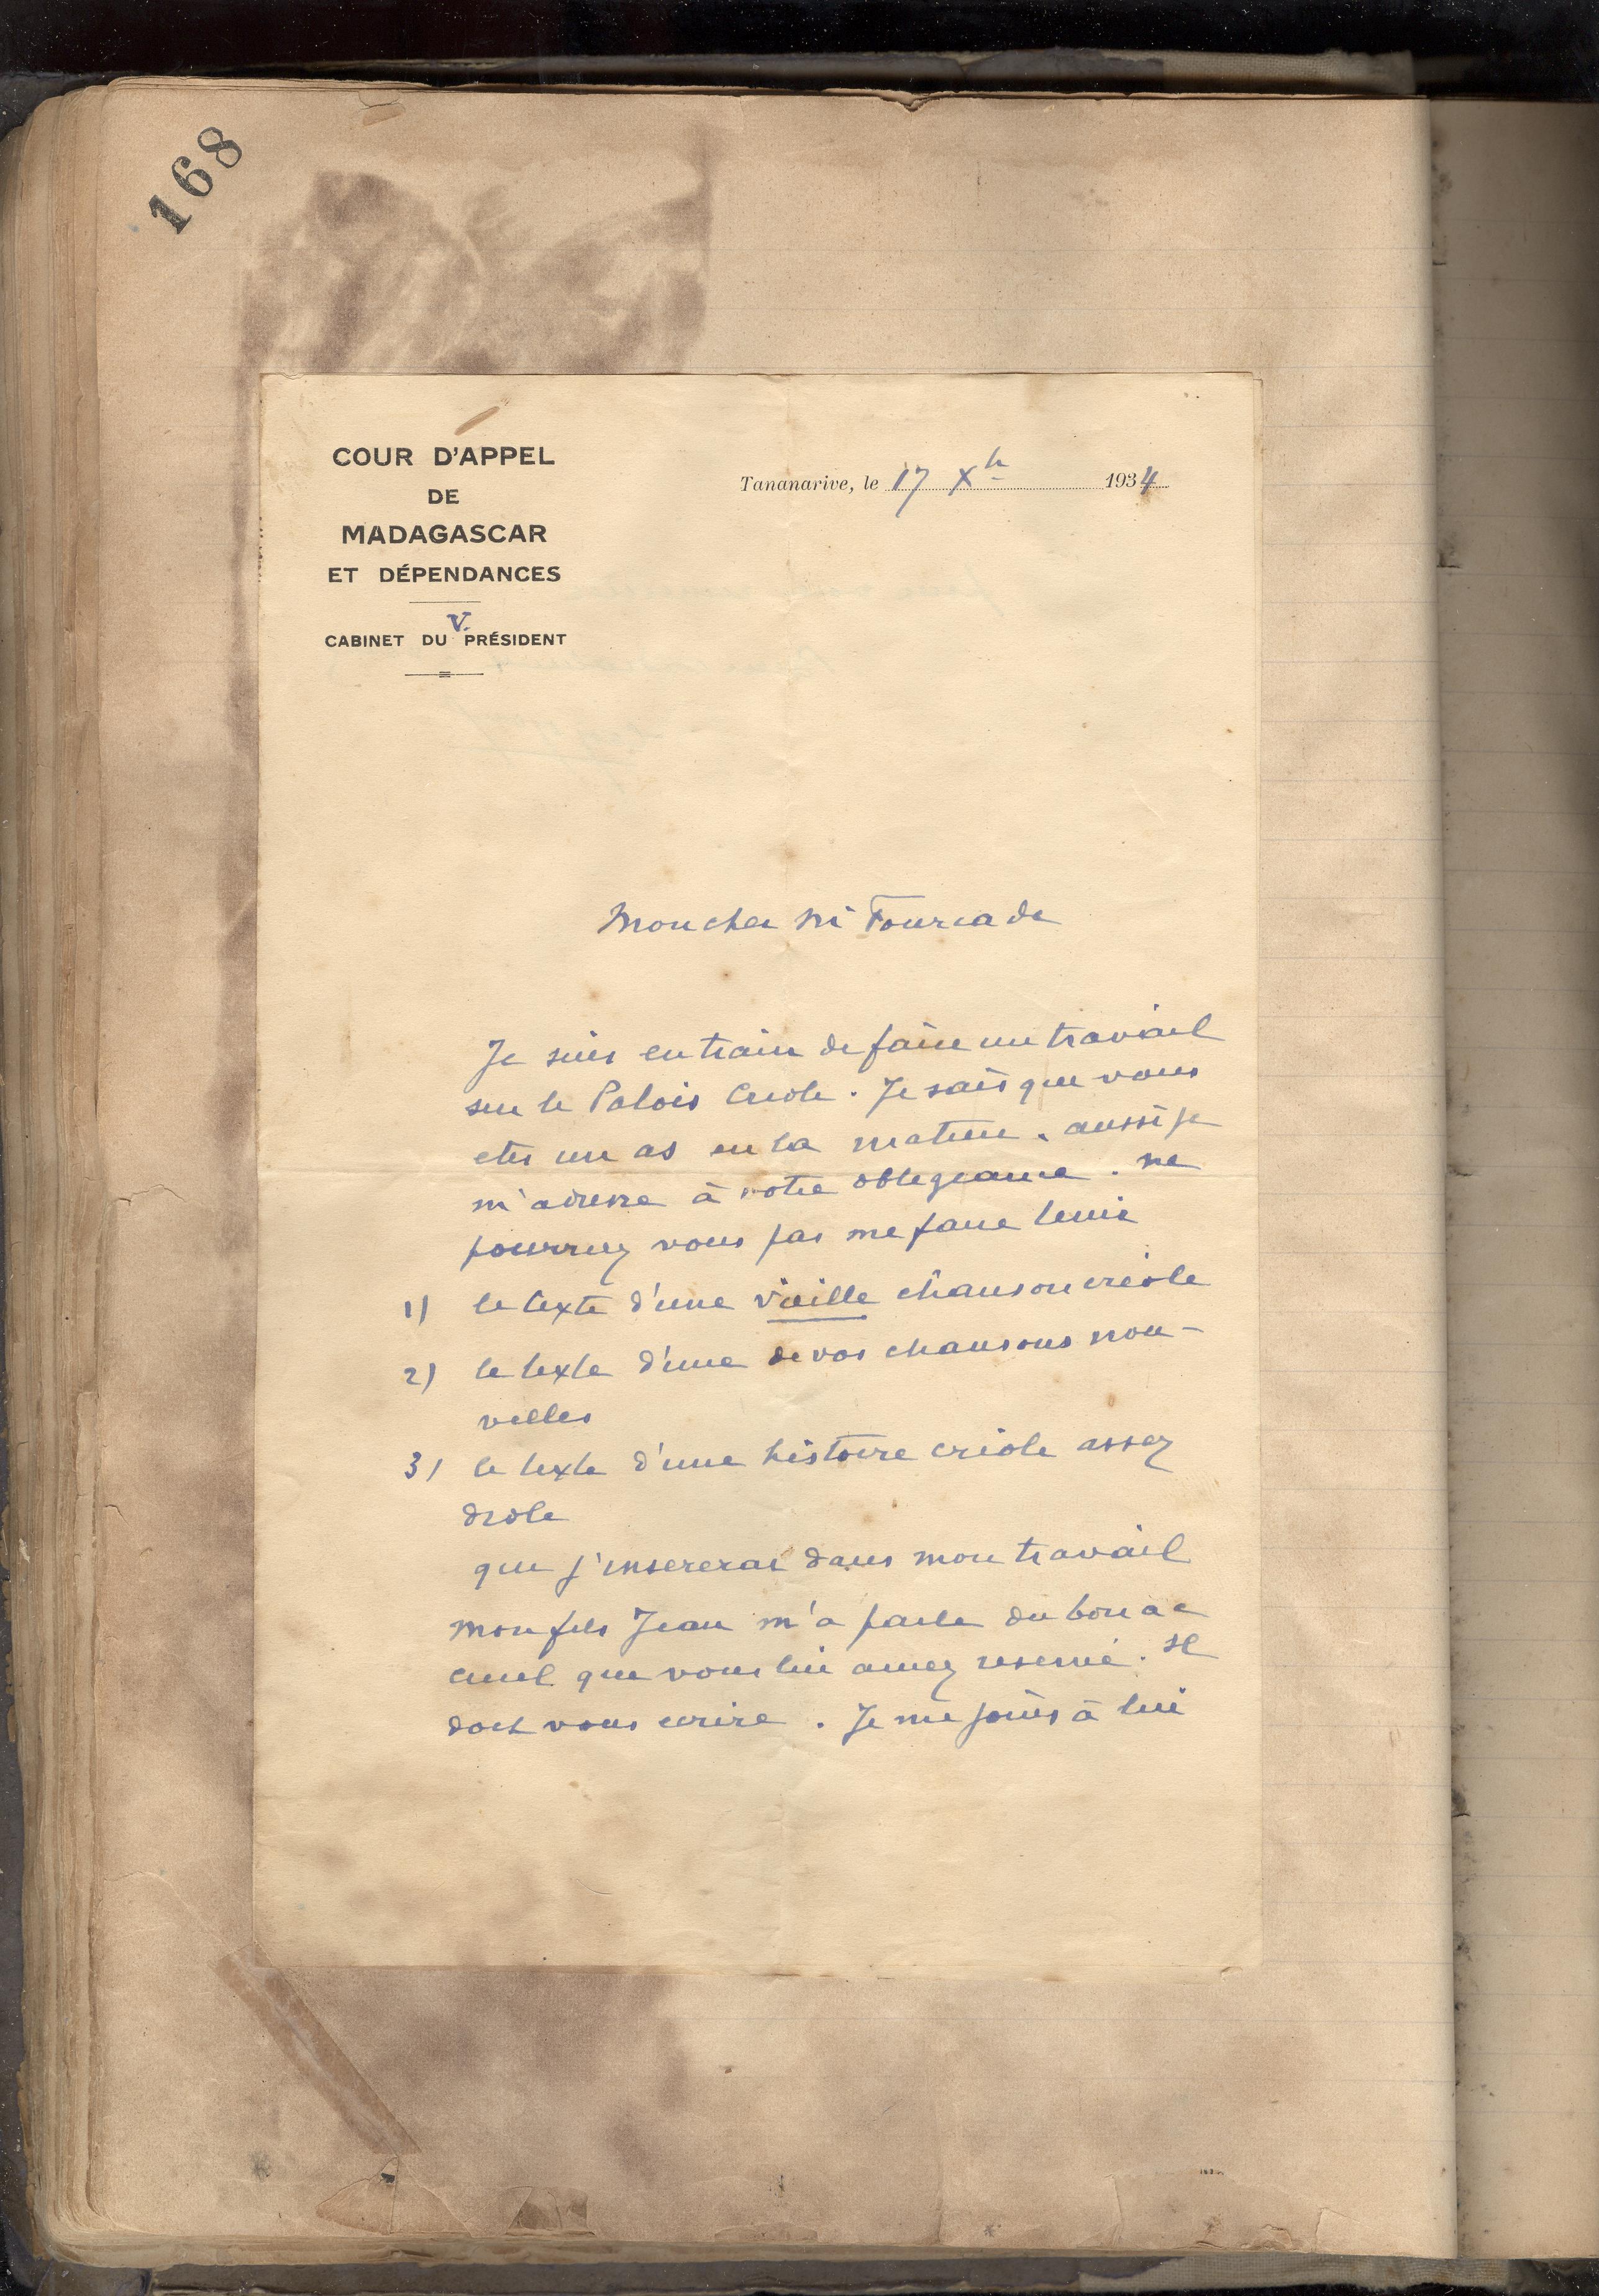 168
COUR D'APPEL
DE
MADAGASCAR
ET DÉPENDANCES
V.
CABINET DU PRÉSIDENT
Tananarive, le 17 Xbre 1934
Mon cher Mr Fourcade
Je suis en train de faire un travail
sur le Patois Creole. Je sais que vous
etes un as en la matiere. aussi je
m'adresse à votre obligeance. ne
pourriez vous pas me faire tenir
1) le texte d'une vieille chanson créole
2) le texte d'une de vos chansons nou-
velles
3) le texte d'une histoire créole assez
drole
que j'insererai dans mon travail
mon fils Jean m'a parlé du bon ac
cueil que vous lui aviez reservé. Il
doit vous ecrire. Je me joins à lui